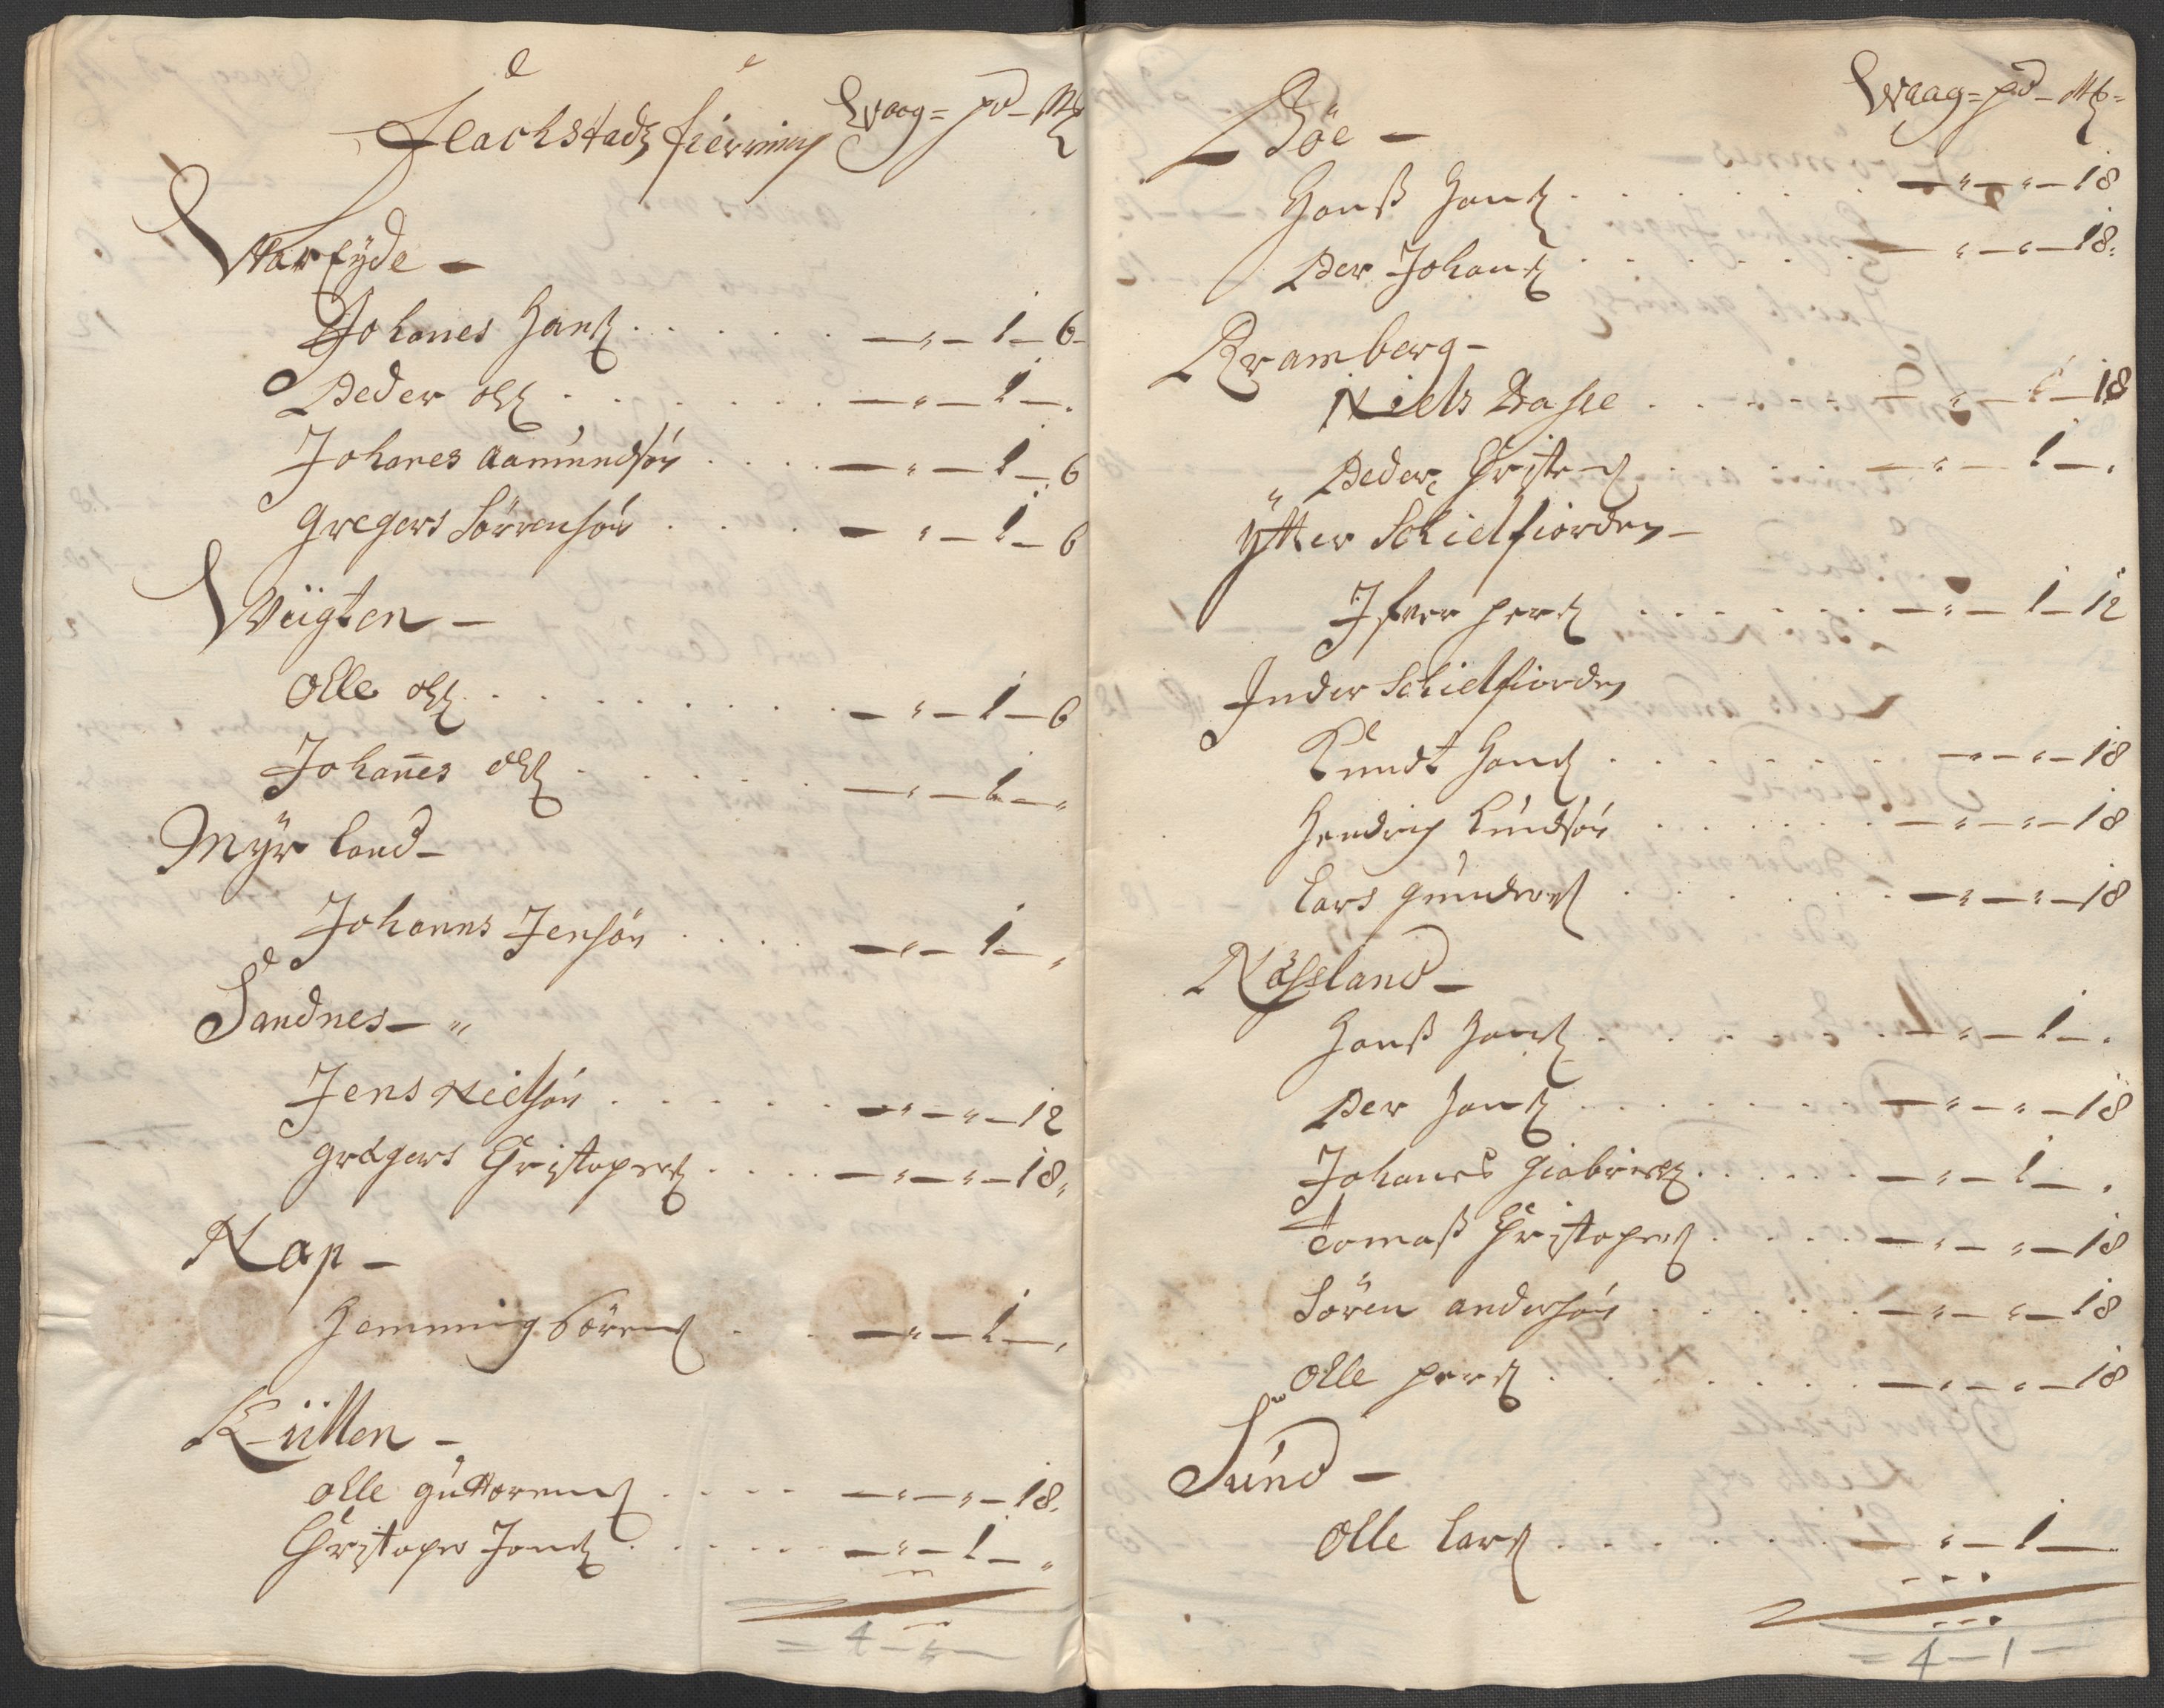 Flachstadz fierring Waag= pd – M₰
Warfyde –
Johanes Hanß – " – 1 – 6
Peder Olß – " – 1 – .
Johanes Aamundsøn – " – 1 – 6
Gregers Sørrensøn – " – 1 – 6
Wiigten –
Olle Olß – " – 1 – 6
Johan̄es Olß – " – 1 – "
Myrland –
Johanns Jensøn – " – 1 – "
Sandnes – "
Jens Nielsøn – " – " – 12
Gregers Christopers – " – " – 18
Nap –
Hemming Sørens – " – 1 – "
Kiilten –
Olle Guttorms – " – " – 18
Christoper Jonß – " – 1 – "
= 4 –
Waag= pd – M₰ =
Böe –
Hanß Hanß – " – " – 18
Per Johanß – " – " – 18
Bramberg –
Niels Dasse – " – 1 – 18
Peder Christens – " – 1 – "
Ytter Schielfiorden –
Ifver Pers – " – 1 – 12
Inder Schielfiorden
Knudt Hanß – " – " – 18
Hendrich Knudsøn – " – " – 18
Lars Gunders – " – " – 18
Næssland –
Hanß Hanß – " – 1 – "
Per Hanß – " – " – 18
Johanes Giabriels – " – 1 – "
Tomaß Christopers – " – " – 18
Sören Andersøn – " – " – 18
Olle Pers – " – " – 18
Sund –
Olle Lars – " – 1 –
= 4 – 1 –